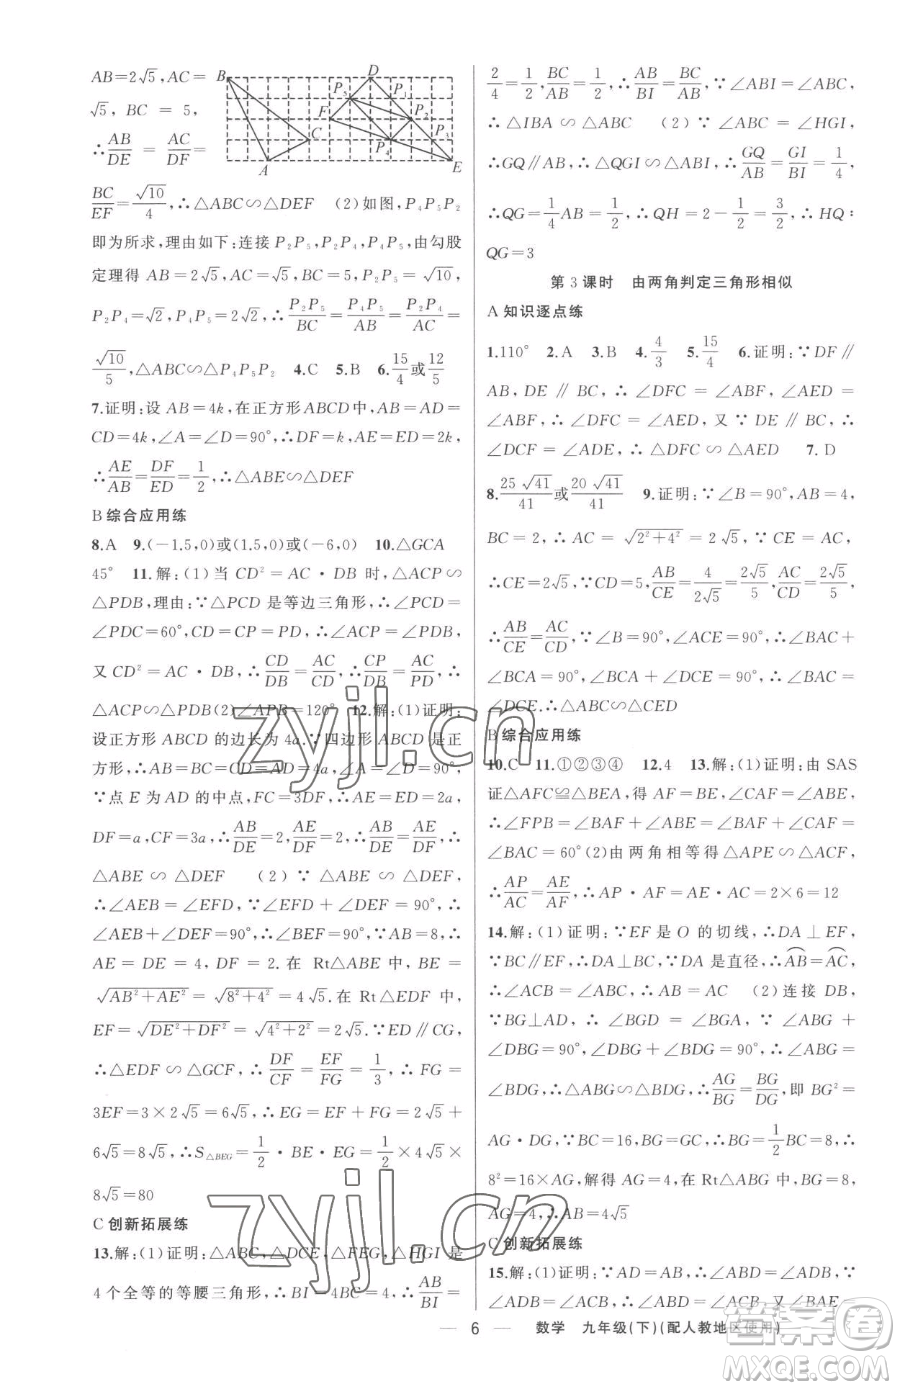 AB=2√5,AC=
√5, BC = 5,
∴AB/DE = AC/DF =
BC/EF=√10/4,∴△ABC∽△DEF (2)如图,P₄P₅P₂
即为所求,理由如下:连接 P₂P₅,P₂P₄,P₄P₅,由勾股
定理得 AB=2√5,AC=√5,BC=5,P₂P₅=√10,
P₂P₄=√2,P₄P₅=2√2,∴P₂P₅/BC=P₄P₅/AB=P₂P₄/AC=
√10/5,△ABC∽△P₄P₅P₂ 4.C 5.B 6.15/4或12/5
7.证明:设 AB=4k,在正方形ABCD中,AB=AD=
CD=4k,∠A=∠D=90°,∴DF=k,AE=ED=2k,
∴AE/AB=DF/ED=1/2,∴△ABE∽△DEF
B 综合应用练
8.A 9.(-1.5,0)或(1.5,0)或(-6,0) 10.△GCA
45° 11.解:(1)当 CD²=AC·DB 时,△ACP∽
△PDB,理由:∵△PCD 是等边三角形,∴∠PCD=
∠PDC=60°,CD=CP=PD,∴∠ACP=∠PDB,
又 CD²=AC·DB,∴CD/DB=AC/CD,∴CP/DB=AC/PD,∴
△ACP∽△PDB(2)∠APB=120° 12.解:(1)证明:
设正方形 ABCD 的边长为 4a.∵四边形 ABCD 是正
方形,∴AB=BC=CD=AD=4a,∠A=∠D=90°,
∵点 E 为 AD 的中点,FC=3DF,∴AE=ED=2a,
DF=a,CF=3a,∴AB/DE=2,AE/DF=2,∴AB/DE=AE/DF,∴
△ABE∽△DEF (2)∵△ABE∽△DEF,
∴∠AEB=∠EFD,∵∠EFD+∠DEF=90°,∴
∠AEB+∠DEF=90°,∴∠BEF=90°,∵AB=8,∴
AE=DE=4,DF=2.在 Rt△ABE 中,BE=
√AB²+AE²=√8²+4²=4√5.在 Rt△EDF 中,
EF=√DE²+DF²=√4²+2²=2√5.∵ED∥CG,
∴△EDF∽△GCF,∴DF/CF=EF/FG=1/3,∴FG=
3EF=3×2√5=6√5,∴EG=EF+FG=2√5+
6√5=8√5,∴S△BEG=1/2·BE·EG=1/2×4√5×
8√5=80
C 创新拓展练
13.解:(1)证明:△ABC,△DCE,△FEG,△HGI 是
4个全等的等腰三角形,∴BI=4BC=4,∴AB/BI=
2/4=1/2,BC/AB=1/2,∴AB/BI=BC/AB,∵∠ABI=∠ABC,
∴△IBA∽△ABC (2)∵∠ABC=∠HGI,
∴GQ∥AB,∴△QGI∽△ABI,∴GQ/AB=GI/BI=1/4,
∴QG=1/4AB=1/2,∴QH=2-1/2=3/2,∴HQ:
QG=3
第3课时 由两角判定三角形相似
A 知识逐点练
1.110° 2.A 3.B 4.4/3 5.15/4 6.证明:∵DF∥
AB,DE∥BC,∴∠DFC=∠ABF,∠AED=
∠ABF,∴∠DFC=∠AED,又∵DE∥BC,∴
∠DCF=∠ADE,∴△DFC∽△AED 7.D
8.25√41/41或20√41/41 9.证明:∵∠B=90°,AB=4,
BC=2,∴AC=√2²+4²=2√5,∵CE=AC,
∴CE=2√5,∵CD=5,AB/CE=4/2√5=2√5/5,AC/CD=2√5/5,
∴AB/CE=AC/CD,∵∠B=90°,∠ACE=90°,∴∠BAC+
∠BCA=90°,∠BCA+∠DCE=90°,∴∠BAC=
∠DCE.∴△ABC∽△CED
B 综合应用练
10.C 11.①②③④ 12.4 13.解:(1)证明:由 SAS
证△AFC≌△BEA,得 AF=BE,∠CAF=∠ABE,
∴∠FPB=∠BAF+∠ABE=∠BAF+∠CAF=
∠BAC=60°(2)由两角相等得△APE∽△ACF,
∴AP/AC=AE/AF,∴AP·AF=AE·AC=2×6=12
14.解:(1)证明:∵EF 是 O 的切线,∴DA⊥EF,
∵BC∥EF,∴DA⊥BC,∵DA 是直径,∴AB=AC,
∴∠ACB=∠ABC,∴AB=AC (2)连接 DB,
∵BG⊥AD,∴∠BGD=∠BGA,∵∠ABG+
∠DBG=90°,∠DBG+∠BDG=90°,∴∠ABG=
∠BDG,∴△ABG∽△BDG,∴AG/BG=BG/DG,即 BG²=
AG·DG,∵BC=16,BG=GC,∴BG=1/2BC=8,∴
8²=16×AG,解得 AG=4,在 Rt△ABG 中,BG=8,
AG=4,∴AB=4√5
C 创新拓展练
15.解:(1)证明:∵AD=AB,∴∠ADB=∠ABD,
∵∠ADB=∠ACB,∴∠ABD=∠ACB,在△ABE
6 数学 九年级(下)(配人教地区使用)
B
D
P₅
P₁
F
P₂
C
P₄
P₃
A
E
zyjl.cn
zyjl.cn
答案圈
MXQE.COM